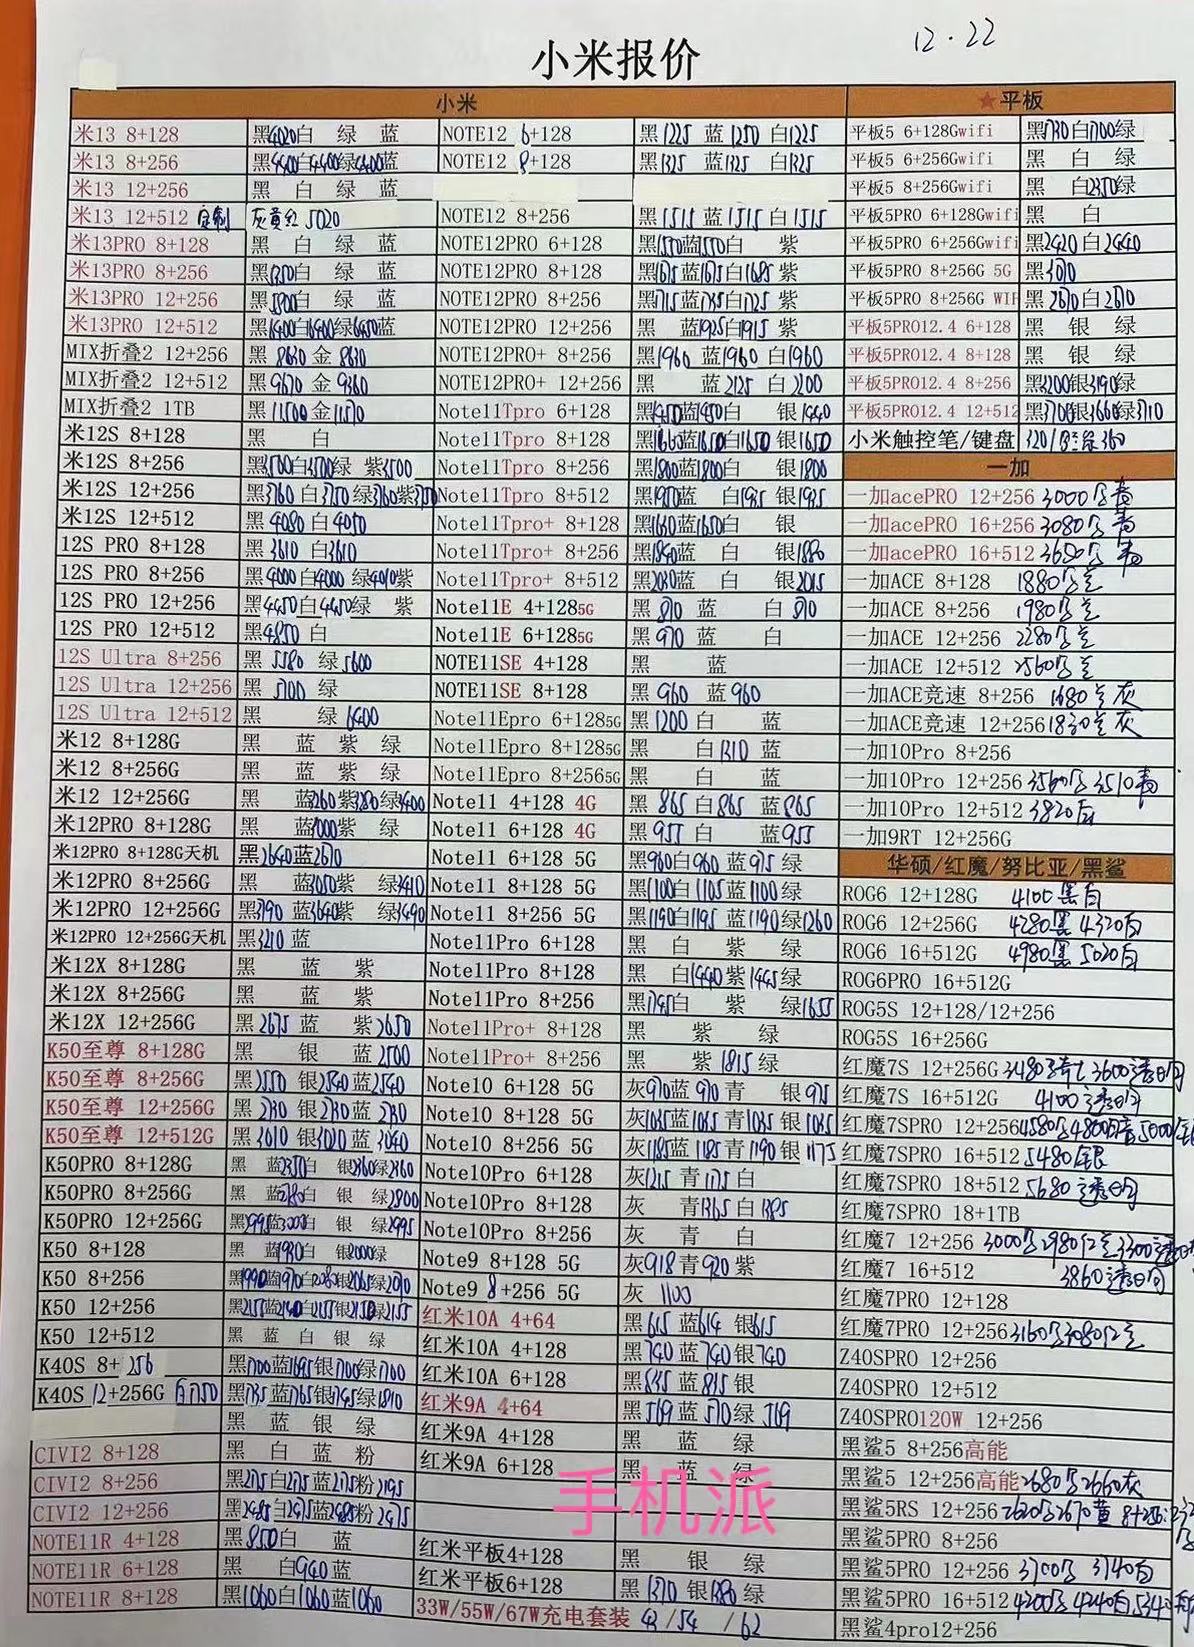 12.22
小米报价
小米
★平板
米13 8+128 黑4020白 绿 蓝 NOTE12 6+128 黑1225 蓝1250 白1225 平板5 6+128Gwifi 黑1730白1700绿
米13 8+256 黑4400白4400绿4400蓝 NOTE12 8+128 黑1325 蓝1325 白1325 平板5 6+256Gwifi 黑 白 绿
米13 12+256 黑 白 绿 蓝 平板5 8+256Gwifi 黑 白2350绿
米13 12+512 定制 灰黄红 5020 NOTE12 8+256 黑1515 蓝1515 白1515 平板5PRO 6+128Gwifi 黑 白
米13PRO 8+128 黑 白 绿 蓝 NOTE12PRO 6+128 黑1550蓝1550白 紫 平板5PRO 6+256Gwifi 黑2420白2440
米13PRO 8+256 黑 白 绿 蓝 NOTE12PRO 8+128 黑1675蓝1675白1685紫 平板5PRO 8+256G 5G 黑3070
米13PRO 12+256 黑 白 绿 蓝 NOTE12PRO 8+256 黑1715蓝1735白1725紫 平板5PRO 8+256G WIF 黑2670白2670
米13PRO 12+512 黑6400白6400绿6450蓝 NOTE12PRO 12+256 黑 蓝1925白1915紫 平板5PRO12.4 6+128 黑 银 绿
MIX折叠2 12+256 黑 8630 金 8630 NOTE12PRO+ 8+256 黑1960 蓝1960 白1960 平板5PRO12.4 8+128 黑 银 绿
MIX折叠2 12+512 黑9670 金 9360 NOTE12PRO+ 12+256 黑 蓝2125 白2200 平板5PRO12.4 8+256 黑3200银3190绿
MIX折叠2 1TB 黑11500金11570 Note11Tpro 6+128 黑1450蓝1450白 银1440 平板5PRO12.4 12+512 黑3710银3660绿3710
米12S 8+128 黑 白 Note11Tpro 8+128 黑1660蓝1650白1650银1650 小米触控笔/键盘 320/ 360
米12S 8+256 黑3500白3500绿 紫3500 Note11Tpro 8+256 黑1800蓝1800白 银1800 一加
米12S 12+256 黑3760白3750绿3760紫3750 Note11Tpro 8+512 黑1950蓝 白1935银1935 一加acePRO 12+256 3000黑 青
米12S 12+512 黑 4080 白4050 Note11Tpro+ 8+128 黑1660蓝1650白 银 一加acePRO 16+256 3080黑 青
12S PRO 8+128 黑 3610 白3610 Note11Tpro+ 8+256 黑1840蓝 白 银1880 一加acePRO 16+512 3650黑 青
12S PRO 8+256 黑4000白4000 绿4010紫 Note11Tpro+ 8+512 黑2030蓝 白 银2015 一加ACE 8+128 1880黑兰
12S PRO 12+256 黑4450白4450绿 紫 Note11E 4+1285G 黑 870 蓝 白 870 一加ACE 8+256 1980黑兰
12S PRO 12+512 黑4850 白 Note11E 6+1285G 黑 970 蓝 白 一加ACE 12+256 2280黑兰
12S Ultra 8+256 黑 5580 绿5600 NOTE11SE 4+128 黑 蓝 一加ACE 12+512 2560黑兰
12S Ultra 12+256 黑 5700 绿 NOTE11SE 8+128 黑 960 蓝 960 一加ACE竞速 8+256 1680兰灰
12S Ultra 12+512 黑 绿 6400 Note11Epro 6+1285G 黑1200 白 蓝 一加ACE竞速 12+256 1830兰灰
米12 8+128G 黑 蓝 紫 绿 Note11Epro 8+1285G 黑 白1310 蓝 一加10Pro 8+256
米12 8+256G 黑 蓝 紫 绿 Note11Epro 8+2565G 黑 白 蓝 一加10Pro 12+256 3560黑3510青
米12 12+256G 黑 蓝3260紫3280绿3400 Note11 4+128 4G 黑 865 白865 蓝865 一加10Pro 12+512 3820白
米12PRO 8+128G 黑 蓝3000紫 绿 Note11 6+128 4G 黑 955 白 蓝955 一加9RT 12+256G
米12PRO 8+128G天机 黑2640蓝2670 Note11 6+128 5G 黑960白960 蓝975绿 华硕/红魔/努比亚/黑鲨
米12PRO 8+256G 黑 蓝3050紫 绿3410 Note11 8+128 5G 黑1100白1105蓝1100绿 ROG6 12+128G 4100黑白
米12PRO 12+256G 黑3790 蓝3640紫 绿3490 Note11 8+256 5G 黑1190白1195 蓝1190绿1260 ROG6 12+256G 4280黑 4320白
米12PRO 12+256G天机 黑3210 蓝 Note11Pro 6+128 黑 白 紫 绿 ROG6 16+512G 4980黑 5020白
米12X 8+128G 黑 蓝 紫 Note11Pro 8+128 黑 白1440紫1445绿 ROG6PRO 16+512G
米12X 8+256G 黑 蓝 紫 Note11Pro 8+256 黑1745白 紫 绿1655 ROG5S 12+128/12+256
米12X 12+256G 黑2675 蓝 紫2650 Note11Pro+ 8+128 黑 紫 绿 ROG5S 16+256G
K50至尊 8+128G 黑 银 蓝 2500 Note11Pro+ 8+256 黑 紫1815绿 红魔7S 12+256G 3480 3600透明
K50至尊 8+256G 黑2550 银2540蓝2540 Note10 6+128 5G 灰970蓝 970青 银975 红魔7S 16+512G 4100透明
K50至尊 12+256G 黑 2730 银2730蓝 2730 Note10 8+128 5G 灰1035蓝1035青1035银1035 红魔7SPRO 12+256 4580
K50至尊 12+512G 黑 3010 银3020蓝 3040 Note10 8+256 5G 灰1185蓝1185青1190银1175 红魔7SPRO 16+512 5480银
K50PRO 8+128G 黑 蓝2350白 银2360绿2360 Note10Pro 6+128 灰1215 青1175白 红魔7SPRO 18+512 5680透明
K50PRO 8+256G 黑 蓝2780白 银 绿2800 Note10Pro 8+128 灰 青1365白1385 红魔7SPRO 18+1TB
K50PRO 12+256G 黑2995蓝3000白 银 绿2995 Note10Pro 8+256 灰 青 白 红魔7 12+256 3000黑2980红兰3300透明
K50 8+128 黑 蓝1980白 银2000绿 Note9 8+128 5G 灰918青920紫 红魔7 16+512 3860透明
K50 8+256 黑1990蓝1970白2080银2065绿2070 Note9 8+256 5G 灰 1100 红魔7PRO 12+128
K50 12+256 黑2155蓝2140白2155银2150绿2155 红米10A 4+64 黑615 蓝614 银615 红魔7PRO 12+256 3160黑3080红兰
K50 12+512 黑 蓝 白 银 绿 红米10A 4+128 黑740蓝740银740 Z40SPRO 12+256
K40S 8+256 黑1700蓝1695银1700绿1700 红米10A 6+128 黑845蓝815银 Z40SPRO 12+512
K40S 12+256G 白1750 黑1735蓝1765银1745绿1840 红米9A 4+64 黑569蓝570绿569 Z40SPRO120W 12+256
黑 蓝 银 绿 红米9A 4+128 黑 蓝 绿 黑鲨5 8+256高能
CIVI2 8+128 黑 白 蓝 粉 红米9A 6+128 黑 蓝 绿 黑鲨5 12+256高能 2680黑2660灰
CIVI2 8+256 黑2175白2175蓝2175粉2195 黑鲨5RS 12+256 2620黑2670黄
CIVI2 12+256 黑2485白2475蓝2485粉2475 黑鲨5PRO 8+256
NOTE11R 4+128 黑850白 蓝 红米平板4+128 黑 银 绿 黑鲨5PRO 12+256 3700黑 3740白
NOTE11R 6+128 黑 白940蓝 红米平板6+128 黑1370 银1380绿 黑鲨5PRO 16+512 4200黑4240白
NOTE11R 8+128 黑1060白1060蓝1060 33W/55W/67W充电套装 43/54 /62 黑鲨4pro12+256
手机派